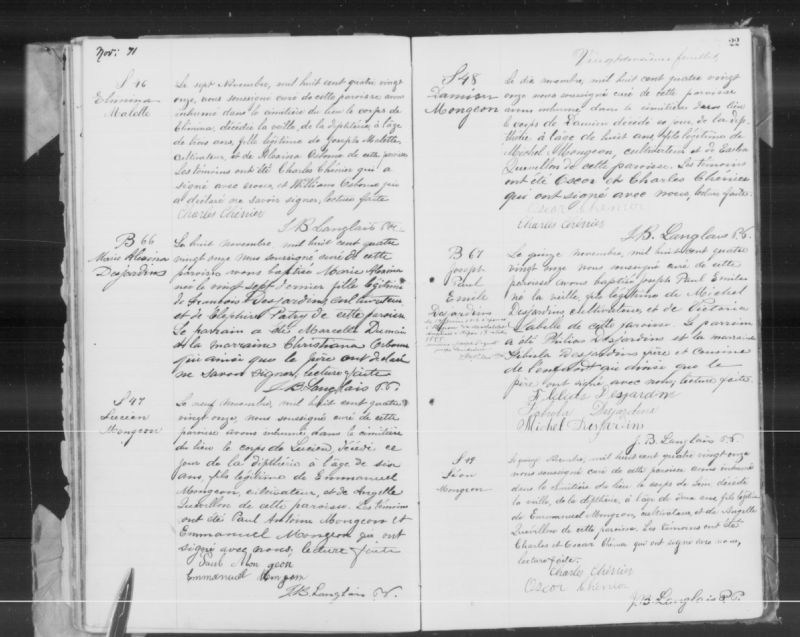 Nov: 91
S 46
Elmina
Malette
Le sept Novembre, mil huit cent quatre vingt
onze, nous soussigné curé de cette paroisse avons
inhumé dans le cimetière du lieu le corps de
Elmina, décédée la veille, de la diphtérie, à l'âge
de trois ans, fille légitime de Joseph Malette,
cultivateur, et de Alexina Osborne de cette paroisse
Les témoins ont été Charles Chénier qui a
signé avec nous, et William Osborne qui
a déclaré ne savoir signer, lecture faite
Charles Chénier
J.B. Langlais Ptr.
B 66
Marie Alexina
Desjardins
Le huit novembre, mil huit cent quatre
vingt onze nous soussigné curé de cette
paroisse avons baptisé Marie Alexina
née le vingt sept dernier fille légitime
de François Desjardins, cultivateur
et de Patry de cette paroisse
Le parrain a été
et la marraine Christiana Osborne
qui ainsi que le père ont déclaré
ne savoir signer, lecture faite
J.B. Langlais Ptr.
S 47
Lucien
Mongeon
Le neuf Novembre, mil huit cent quatre
vingt onze, nous soussigné curé de cette
paroisse avons inhumé dans le cimetière
du lieu le corps de Lucien, décédé ce
jour de la diphtérie à l'âge de six
ans, fils légitime de Emmanuel
Mongeon, cultivateur, et de Angelle
Quévillon de cette paroisse. Les témoins
ont été Paul Antoine Mongeon et
Emmanuel Mongeon qui ont
signé avec nous, lecture faite
Paul Mongeon
Emmanuel Mongeon
J.B. Langlais Ptr.
22
Vingtdeuxième feuillet
S 48
Damien
Mongeon
Le dix novembre, mil huit cent quatre vingt
onze nous soussigné curé de cette paroisse
avons inhumé dans le cimetière de ce lieu
le corps de Damien décédé ce jour, de la diph
thérie à l'âge de huit ans, fils légitime de
Michel Mongeon, cultivateur et de
Quévillon de cette paroisse. Les témoins
ont été Oscar et Charles Chénier
qui ont signé avec nous, lecture faite.
Oscar Chénier
Charles Chénier
J.B. Langlais Ptr.
B 67
Joseph
Paul
Emile
Desjardins
Le quinze novembre, mil huit cent quatre
vingt onze nous soussigné curé de cette
paroisse avons baptisé Joseph Paul Emile
né la veille, fils légitime de Michel
Desjardins cultivateur, et de Victoria
Labelle de cette paroisse. Le parrain
a été Philias Desjardins et la marraine
Desjardins frère et cousine
de l'enfant qui ainsi que le
père ont signé avec nous, lecture faite.
Philias Desjardin
Desjardins
Michel Desjardins
J.B. Langlais Ptr.
S 49
Léon
Mongeon
Le quinze Novembre, mil huit cent quatre vingt onze
nous soussigné curé de cette paroisse avons inhumé
dans le cimetière du lieu le corps de Léon décédé
la veille, de la diphtérie, à l'âge de deux ans, fils légitime
de Emmanuel Mongeon, cultivateur, et de Angelle
Quévillon de cette paroisse. Les témoins ont été
Charles et Oscar Chénier qui ont signé avec nous,
lecture faite.
Charles Chénier
Oscar Chénier
J.B. Langlais Ptr.